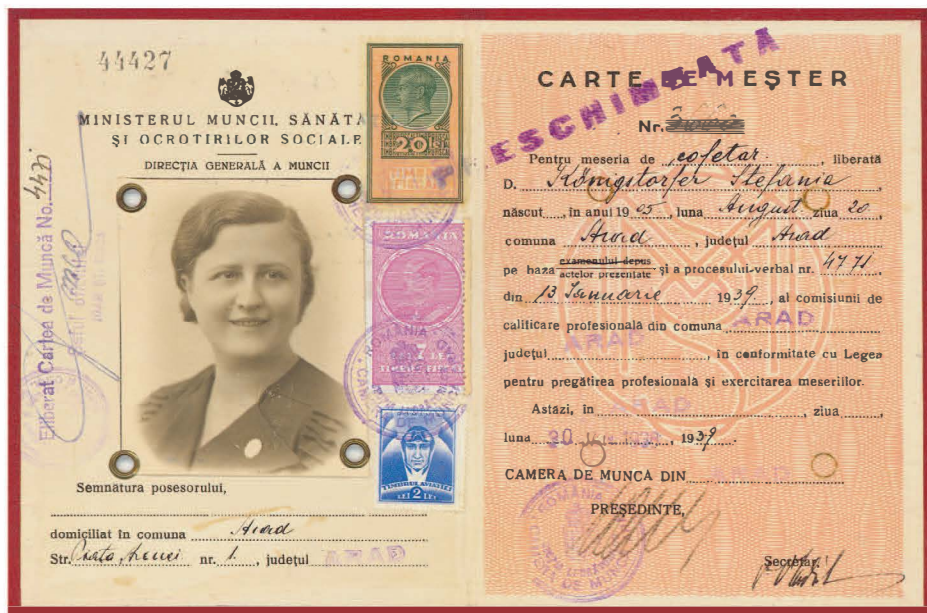 44427
MINISTERUL MUNCII, SĂNĂTĂ
ȘI OCROTIRILOR SOCIALE
DIRECȚIA GENERALĂ A MUNCII
Eliberat Cartea de Muncă No.
ROMANIA
20 LEI
ROMANIA
TIMBRU FISCAL
TIMBRUL AVIAȚIEI
LEI 2 LEI
Semnătura posesorului,
domiciliat în comuna Arad
Str. nr. 1, județul ARAD
PRESCHIMBATA
CARTE DE MEȘTER
Nr.
Pentru meseria de cofetar, liberată
D. Königstorfer Stefania,
născut, în anul 1905, luna August ziua 20,
comuna Arad, județul Arad
pe baza examenului depus
actelor prezentate și a procesului-verbal nr. 4771,
din 13 Ianuarie 1939, al comisiunii de
calificare profesională din comuna ARAD
județul ARAD, în conformitate cu Legea
pentru pregătirea profesională și exercitarea meseriilor.
Astăzi, în ARAD, ziua
luna 20, 1939.
CAMERA DE MUNCĂ DIN ARAD
PREȘEDINTE,
Secretar,